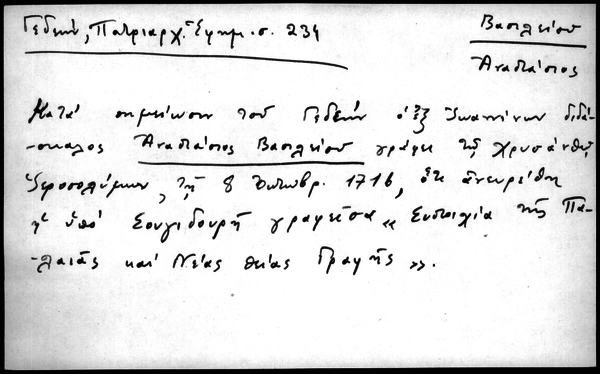 Γεδεών, Πατριαρχ. Ἐφημ. σ. 234
Βασιλείου
Ἀναστάσιος
Κατά σημείωσιν τοῦ Γεδεών ὁ ἐξ Ἰωαννίνων διδά-
-σκαλος Ἀναστάσιος Βασιλείου γράφει τῷ Χρυσάνθῳ
Ἱεροσολύμων, τῇ 8 Ὀκτωβρ. 1716, ὅτι ἀνευρέθη
ἡ ὑπό Σουγδουρῆ γραφεῖσα «Συστοιχία τῆς Πα-
-λαιᾶς καί Νέας θείας Γραφῆς».